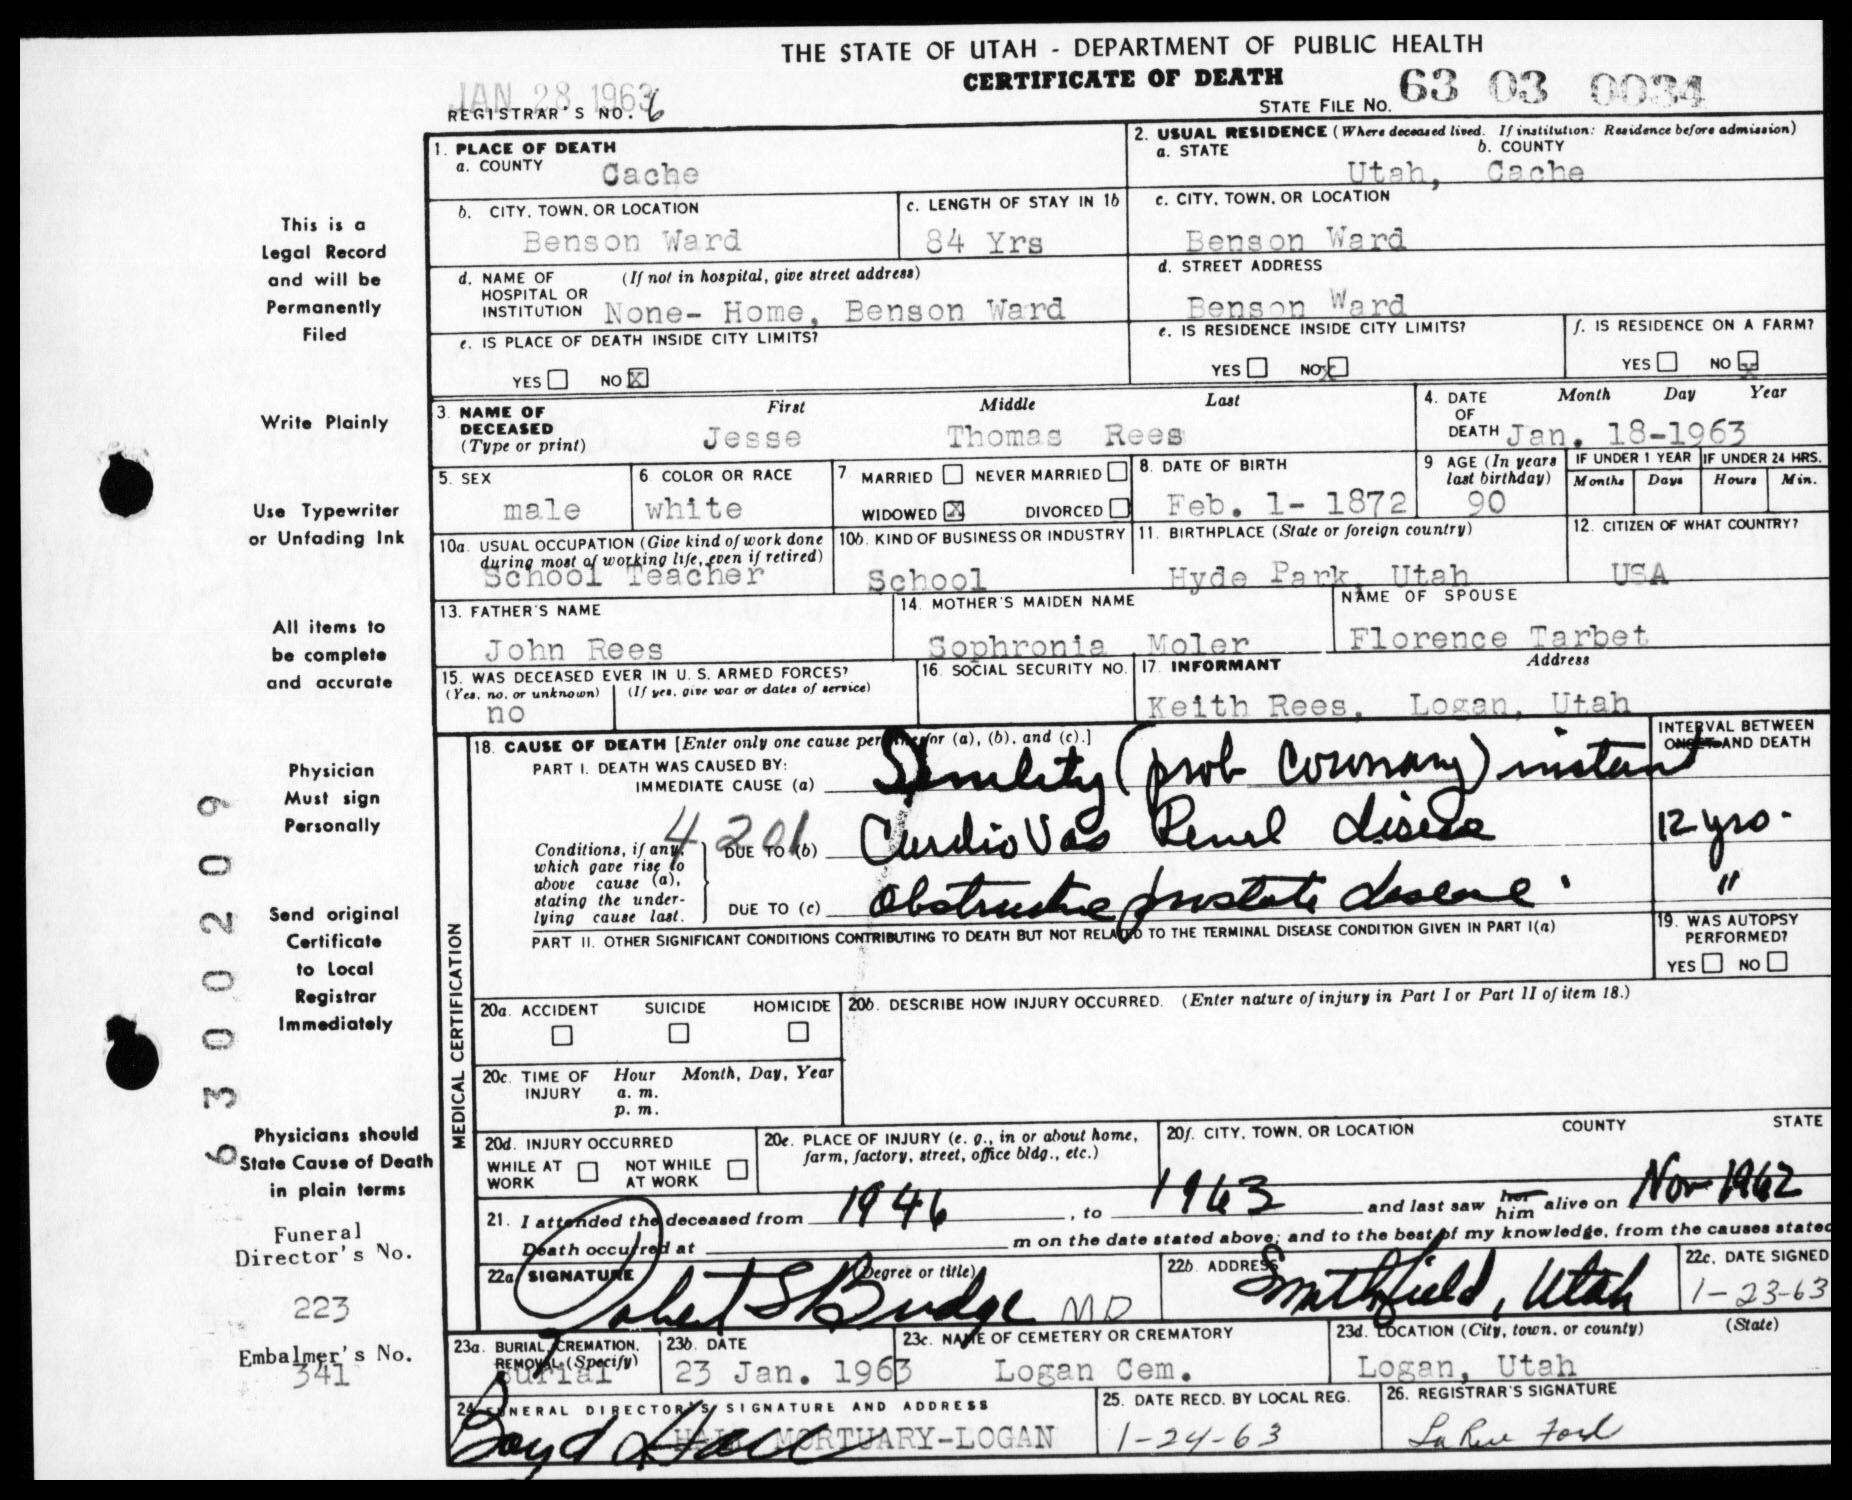 THE STATE OF UTAH - DEPARTMENT OF PUBLIC HEALTH
CERTIFICATE OF DEATH
JAN 28 1963
REGISTRAR'S NO. 6
STATE FILE NO. 63 03 0034
This is a
Legal Record
and will be
Permanently
Filed
Write Plainly
Use Typewriter
or Unfading Ink
All items to
be complete
and accurate
Physician
Must sign
Personally
Send original
Certificate
to Local
Registrar
Immediately
Physicians should
State Cause of Death
in plain terms
Funeral
Director's No.
223
Embalmer's No.
341
6300209
1. PLACE OF DEATH
a. COUNTY
Cache
2. USUAL RESIDENCE (Where deceased lived. If institution: Residence before admission)
a. STATE b. COUNTY
Utah, Cache
b. CITY, TOWN, OR LOCATION
Benson Ward
c. LENGTH OF STAY IN 1b
84 Yrs
c. CITY, TOWN, OR LOCATION
Benson Ward
d. NAME OF HOSPITAL OR INSTITUTION (If not in hospital, give street address)
None- Home, Benson Ward
d. STREET ADDRESS
Benson Ward
e. IS PLACE OF DEATH INSIDE CITY LIMITS?
YES NO X
e. IS RESIDENCE INSIDE CITY LIMITS?
YES NO X
f. IS RESIDENCE ON A FARM?
YES NO X
3. NAME OF DECEASED (Type or print)
First Middle Last
Jesse Thomas Rees
4. DATE OF DEATH Month Day Year
Jan. 18-1963
5. SEX
male
6 COLOR OR RACE
white
7 MARRIED NEVER MARRIED
WIDOWED X DIVORCED
8. DATE OF BIRTH
Feb. 1- 1872
9 AGE (In years last birthday)
90
IF UNDER 1 YEAR
Months Days
IF UNDER 24 HRS.
Hours Min.
10a. USUAL OCCUPATION (Give kind of work done during most of working life, even if retired)
School Teacher
10b. KIND OF BUSINESS OR INDUSTRY
School
11. BIRTHPLACE (State or foreign country)
Hyde Park, Utah
12. CITIZEN OF WHAT COUNTRY?
USA
13. FATHER'S NAME
John Rees
14. MOTHER'S MAIDEN NAME
Sophronia Moler
NAME OF SPOUSE
Florence Tarbet
15. WAS DECEASED EVER IN U. S. ARMED FORCES?
(Yes, no, or unknown) (If yes, give war or dates of service)
no
16. SOCIAL SECURITY NO.
17. INFORMANT Address
Keith Rees, Logan, Utah
MEDICAL CERTIFICATION
18. CAUSE OF DEATH [Enter only one cause per line for (a), (b), and (c).]
INTERVAL BETWEEN ONSET AND DEATH
PART I. DEATH WAS CAUSED BY:
IMMEDIATE CAUSE (a) Senility (prob coronary) instant
4201
Conditions, if any, which gave rise to above cause (a), stating the underlying cause last.
DUE TO (b) Cardio Vas Renal disease 12 yrs.
DUE TO (c) Obstructive prostate disease. "
PART II. OTHER SIGNIFICANT CONDITIONS CONTRIBUTING TO DEATH BUT NOT RELATED TO THE TERMINAL DISEASE CONDITION GIVEN IN PART I(a)
19. WAS AUTOPSY PERFORMED?
YES NO
20a. ACCIDENT SUICIDE HOMICIDE
20b. DESCRIBE HOW INJURY OCCURRED. (Enter nature of injury in Part I or Part II of item 18.)
20c. TIME OF INJURY Hour Month, Day, Year
a. m.
p. m.
20d. INJURY OCCURRED
WHILE AT WORK NOT WHILE AT WORK
20e. PLACE OF INJURY (e. g., in or about home, farm, factory, street, office bldg., etc.)
20f. CITY, TOWN, OR LOCATION COUNTY STATE
21. I attended the deceased from 1946, to 1963 and last saw her him alive on Nov 1962
Death occurred at m on the date stated above; and to the best of my knowledge, from the causes stated
22a. SIGNATURE (Degree or title)
Robert S Budge MD
22b. ADDRESS
Smithfield, Utah
22c. DATE SIGNED
1-23-63
23a. BURIAL, CREMATION, REMOVAL (Specify)
Burial
23b. DATE
23 Jan. 1963
23c. NAME OF CEMETERY OR CREMATORY
Logan Cem.
23d. LOCATION (City, town, or county) (State)
Logan, Utah
24. FUNERAL DIRECTOR'S SIGNATURE AND ADDRESS
Boyd Hall
HALL MORTUARY-LOGAN
25. DATE RECD. BY LOCAL REG.
1-24-63
26. REGISTRAR'S SIGNATURE
La Rue Ford